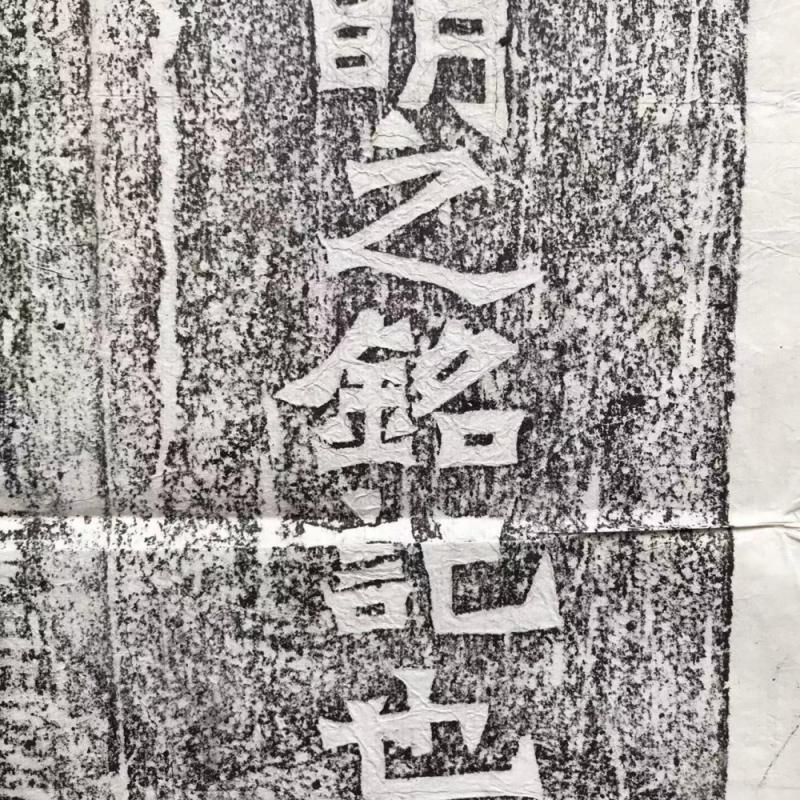 之銘記也